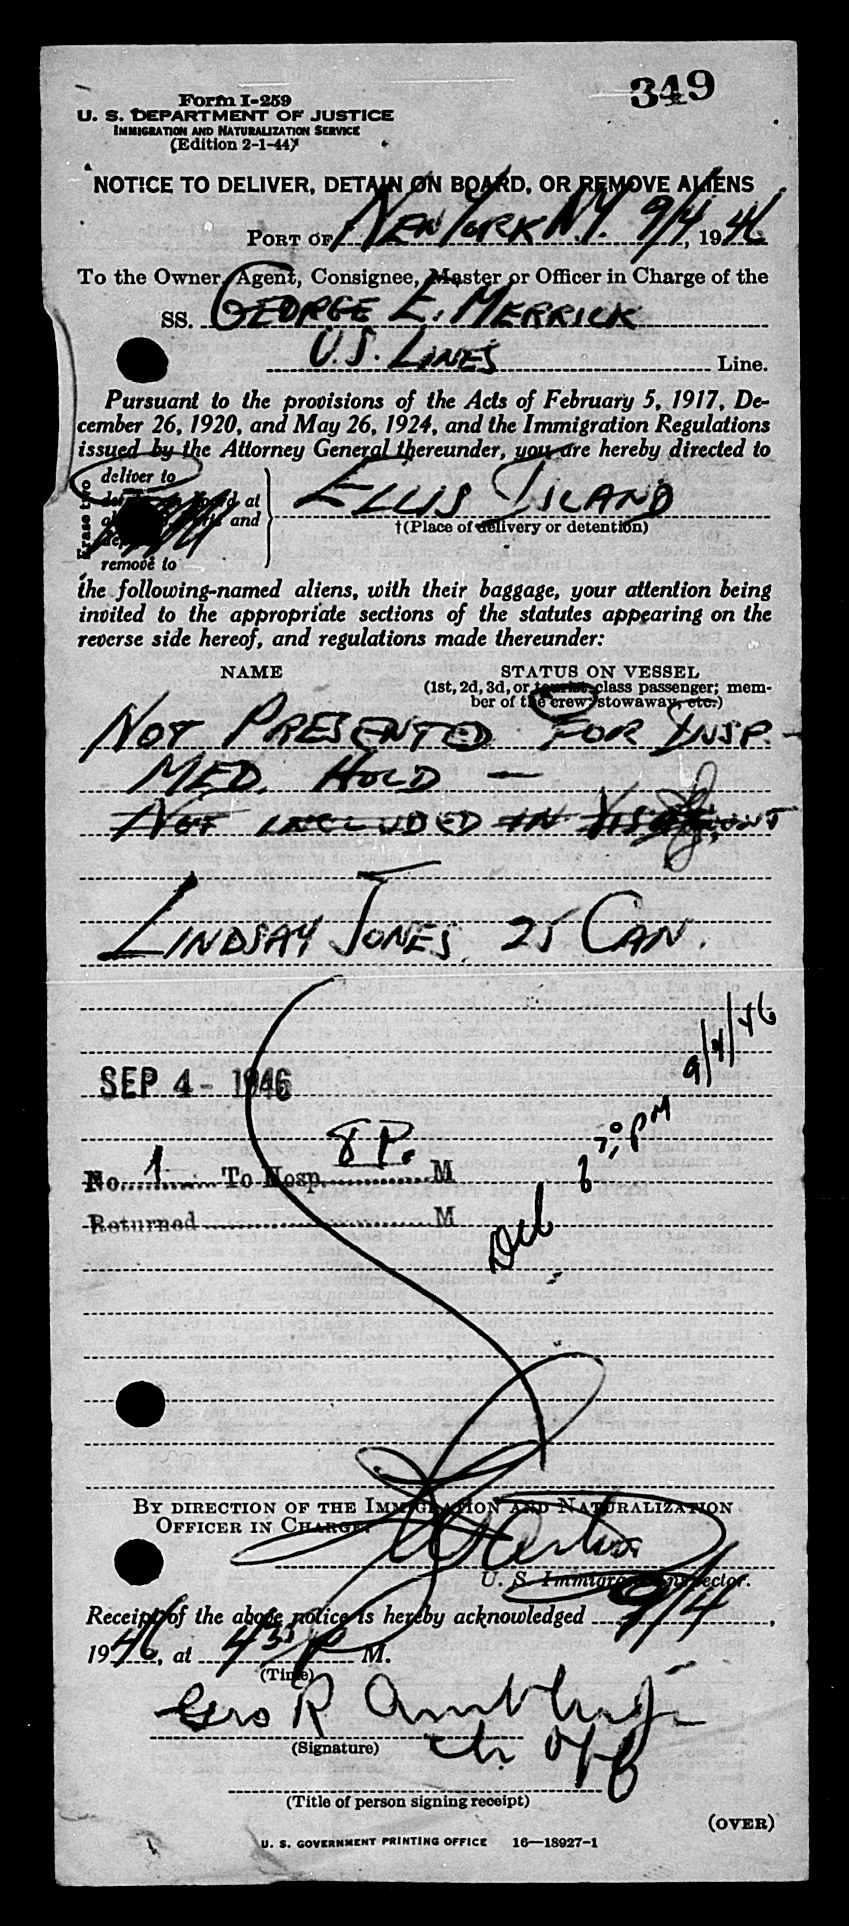 349
Form I-259
U. S. DEPARTMENT OF JUSTICE
IMMIGRATION AND NATURALIZATION SERVICE
(Edition 2-1-44)
NOTICE TO DELIVER, DETAIN ON BOARD, OR REMOVE ALIENS
PORT OF NEW YORK N.Y. 9/4, 1946
To the Owner, Agent, Consignee, Master or Officer in Charge of the
SS. GEORGE E. MERRICK
U.S. LINES Line.
Pursuant to the provisions of the Acts of February 5, 1917, De-
cember 26, 1920, and May 26, 1924, and the Immigration Regulations
issued by the Attorney General thereunder, you are hereby directed to
Erase two
deliver to
at
and
remove to
ELLIS ISLAND
†(Place of delivery or detention)
the following-named aliens, with their baggage, your attention being
invited to the appropriate sections of the statutes appearing on the
reverse side hereof, and regulations made thereunder:
NAME STATUS ON VESSEL
(1st, 2d, 3d, or tourist-class passenger; mem-
ber of the crew, stowaway, etc.)
NOT PRESENTED FOR INSP. -
MED. HOLD -
NOT INCLUDED IN
LINDSAY JONES 25 CAN.
9/4/46
SEP 4 - 1946
No. 1 To Hosp. 8 P. M
Returned M
Del PM
BY DIRECTION OF THE IMMIGRATION AND NATURALIZATION
OFFICER IN CHARGE:
U. S. Immigrant Inspector.
Receipt of the above notice is hereby acknowledged 9/4,
1946, at 4 35 P M.
(Time)
Geo R
(Signature)
Ch. Off
(Title of person signing receipt)
(OVER)
U. S. GOVERNMENT PRINTING OFFICE 16—18927-1